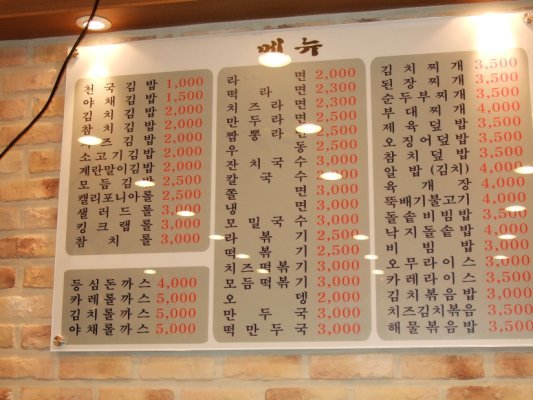 메뉴
천국김밥 1,000
야채김밥 1,500
김치김밥 2,000
참치김밥 2,000
즈김밥 2,000
소고기김밥 2,000
계란말이김밥 2,000
모듬김밥 2,500
캘리포니아롤 2,500
샐러드롤 3,000
킹크랩롤 3,000
참치롤 3,000
등심돈까스 4,000
카레롤까스 5,000
김치롤까스 5,000
야채롤까스 5,000
라면 2,000
떡라면 2,300
치즈라면 2,300
만두라면 2,500
짬뽕라면 2,500
우동 2,500
잔치국수 3,000
칼국수 3,000
쫄면 3,000
냉면
모밀국수 3,000
라볶기 2,500
떡볶기 2,500
치즈떡볶기 3,000
모듬떡볶기 3,000
오뎅 2,000
만두국 3,000
떡만두국 3,000
김치찌개 3,500
된장찌개 3,500
순두부찌개 3,500
부대찌개 4,000
제육덮밥 4,000
오징어덮밥 3,500
참치덮밥 3,500
알밥(김치) 4,000
육개장 4,000
뚝배기불고기 4,000
돌솥비빔밥 3,500
낙지돌솥밥 4,000
비빔밥
오무라이스 3,500
카레라이스 3,500
김치볶음밥 3,500
치즈김치볶음 3,500
해물볶음밥 3,500